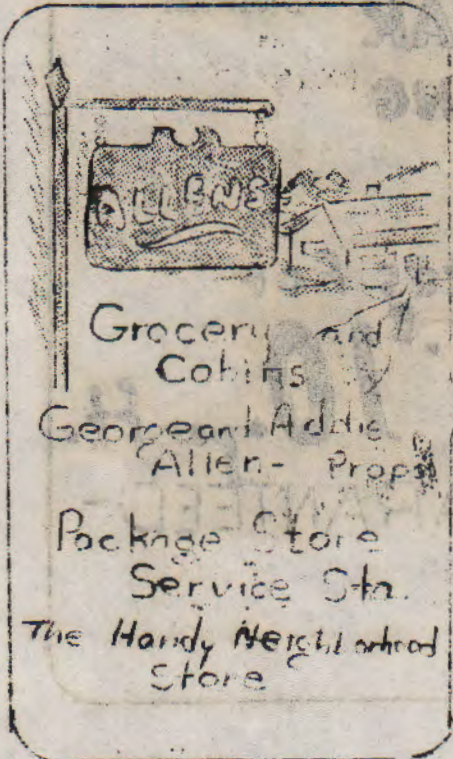 ALLENS
Grocery and
Cabins
George and Addie
Allen- Props
Package Store
Service Sta.
The Handy Neighborhood
Store